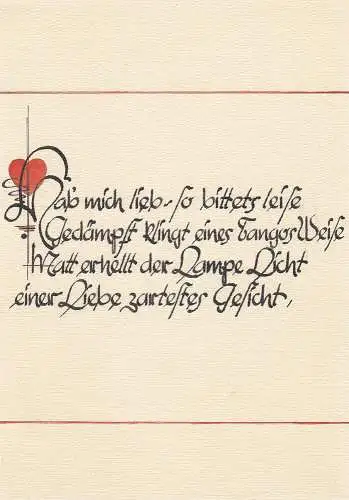 Hab' mich lieb - so bittets leise
Gedämpft klingt eines Tangos Weise
Matt erhellt der Lampe Licht
einer Liebe zartestes Gesicht,